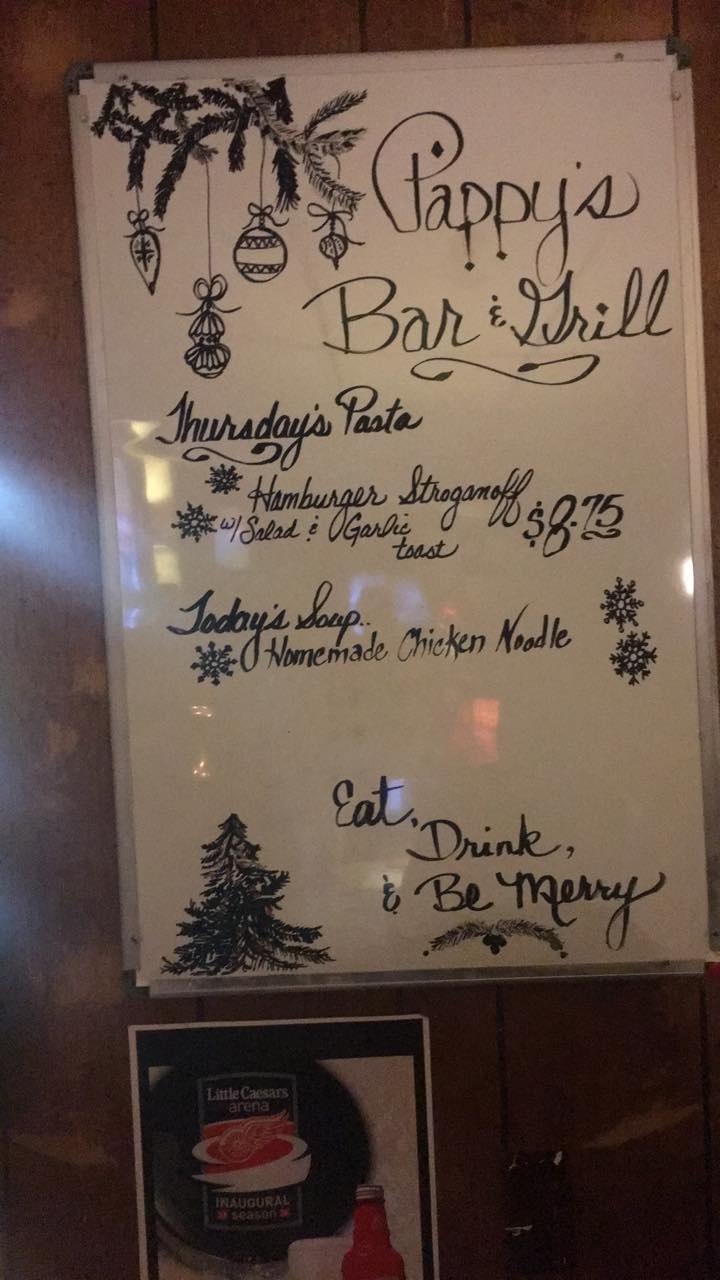 Pappy's
Bar & Grill
Thursday's Pasta
Hamburger Stroganoff
w/ Salad & Garlic
toast
$8.75
Today's Soup..
Homemade Chicken Noodle
Eat,
Drink,
& Be Merry
Little Caesars
arena
INAUGURAL
season